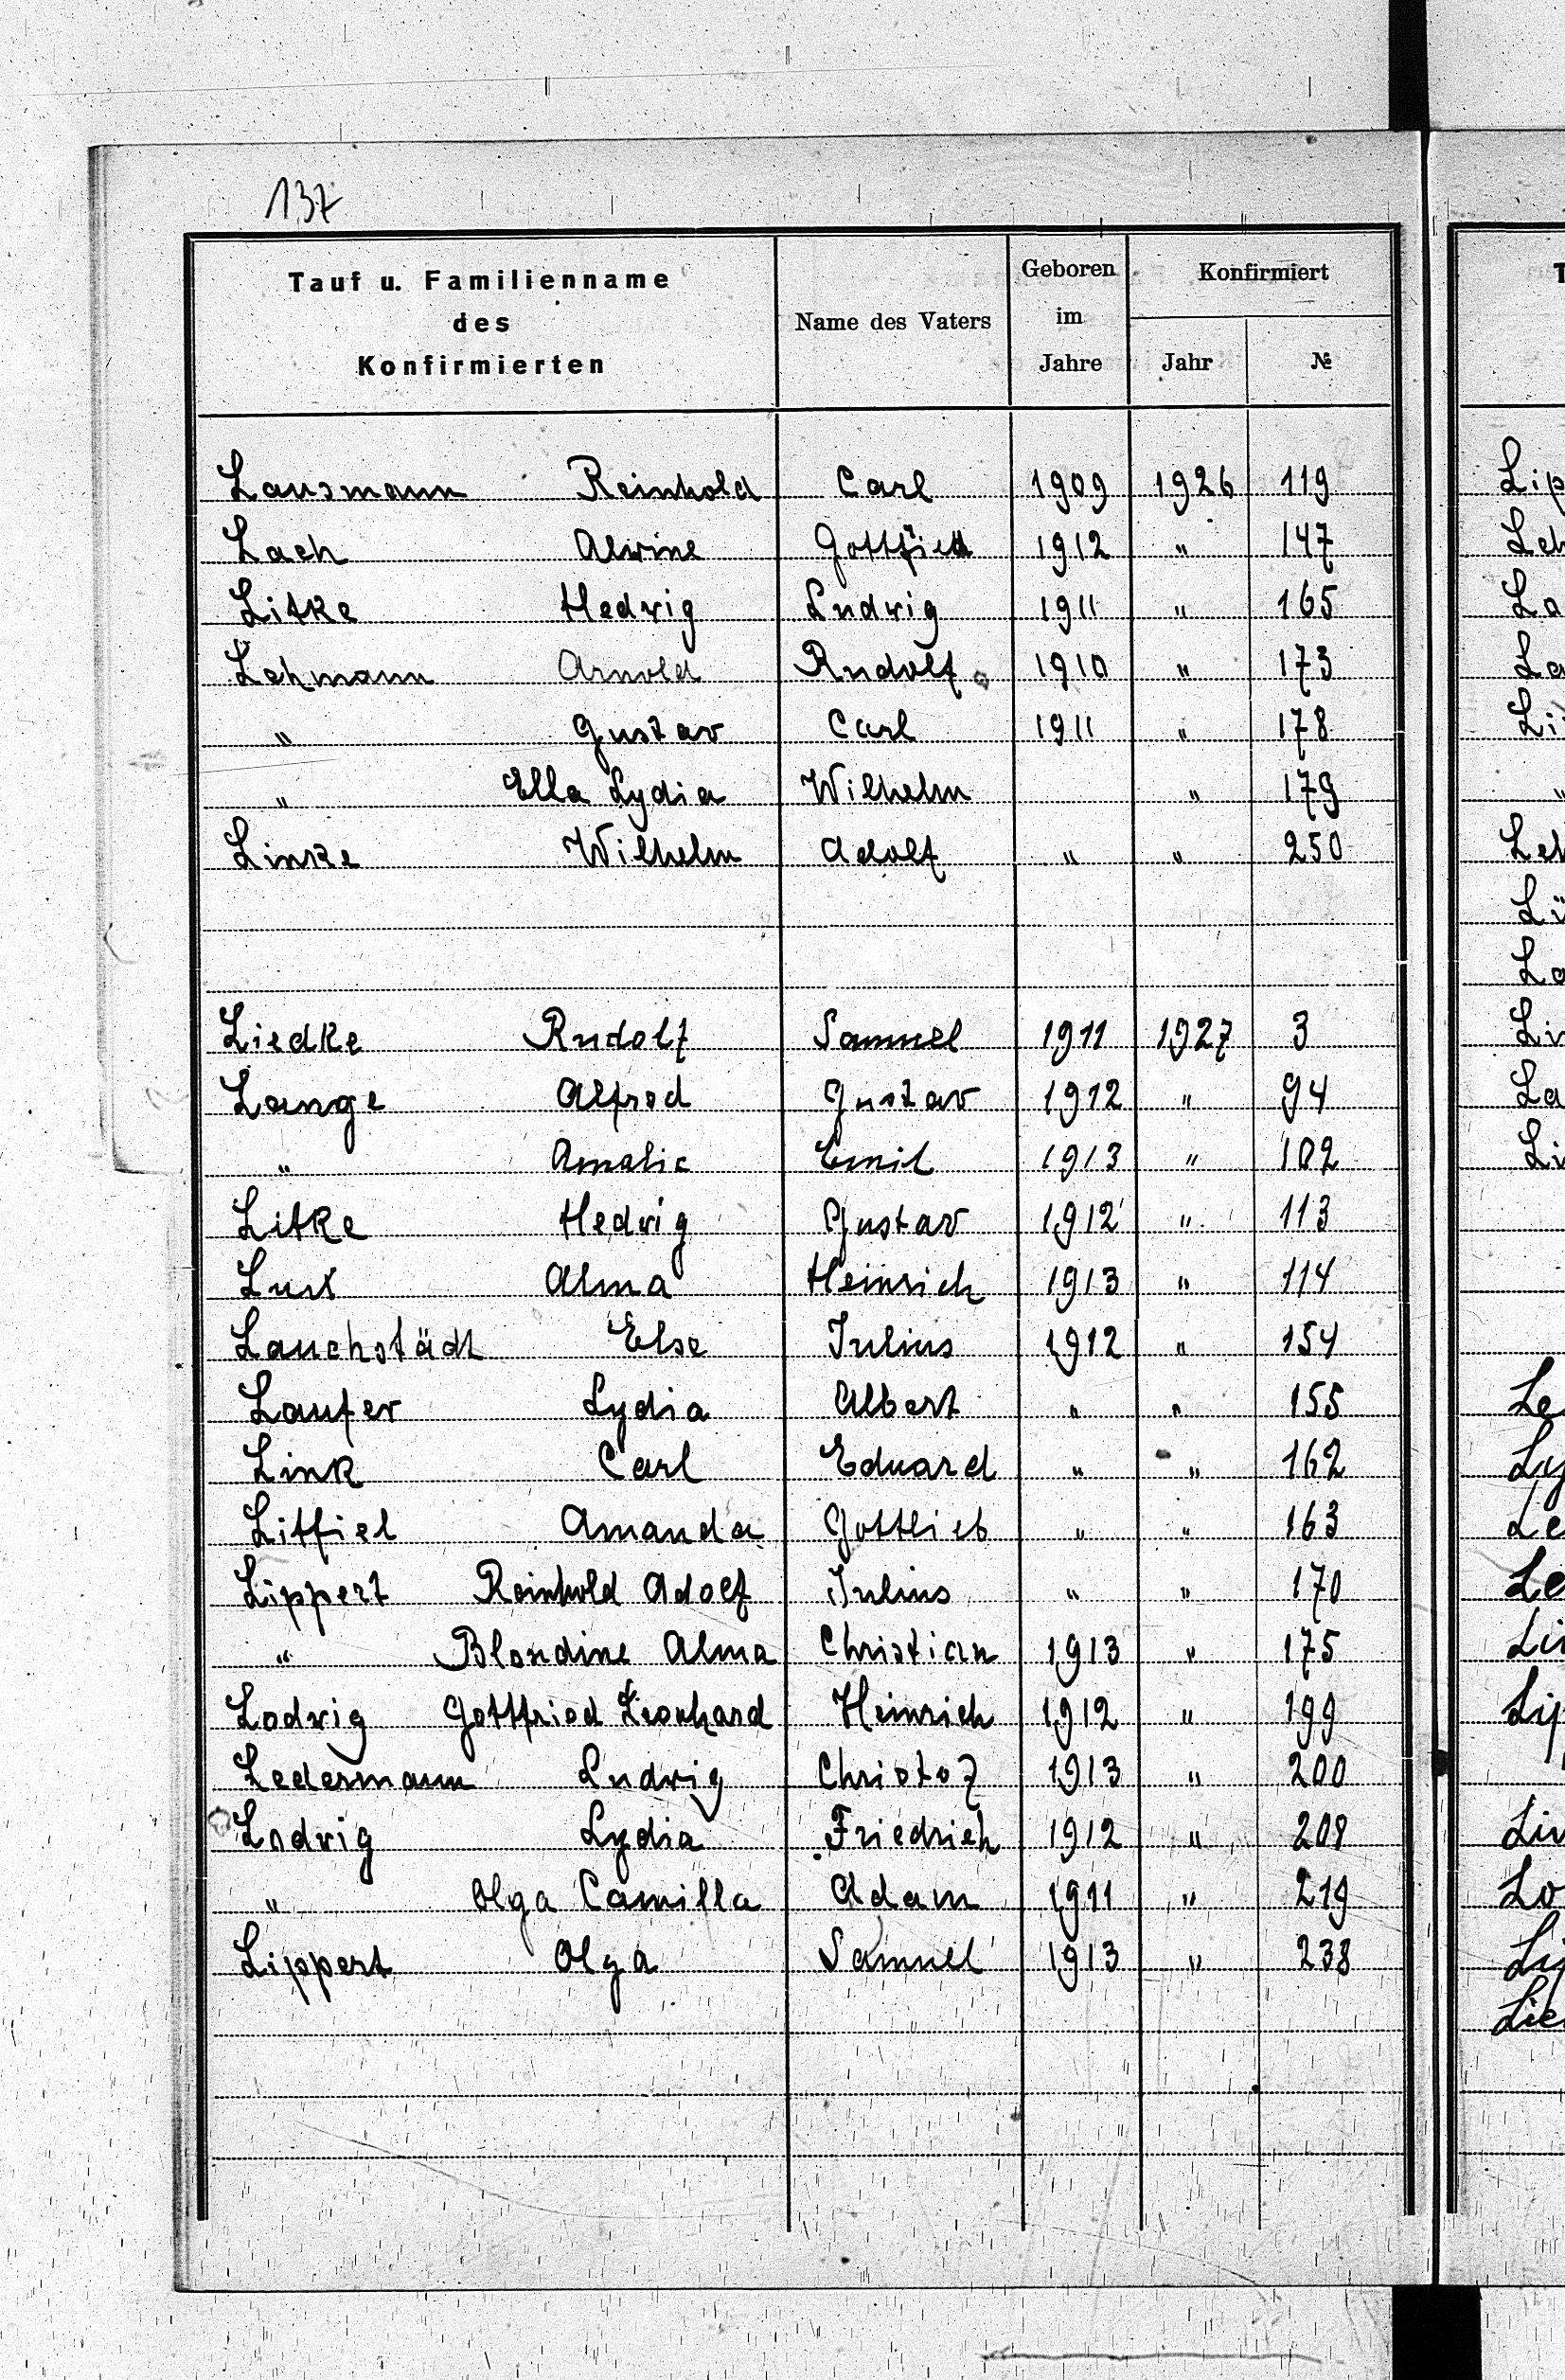 137
Tauf u. Familienname des Konfirmierten | Name des Vaters | Geboren im Jahre | Konfirmiert Jahr | №
Lausmann Reinhold Carl 1909 1926 119
Lach Alwine Gottfied 1912 " 147
Litke Hedwig Ludwig 1911 " 165
Lehmann Arnold Rudolf 1910 " 173
" Gustav Carl 1911 " 178
" Ella Lydia Wilhelm " 179
Linke Wilhelm Adolf " " 250
Liedke Rudolf Samuel 1911 1927 3
Lange Alfred Gustav 1912 " 94
" Amalie Emil 1913 " 102
Litke Hedwig Gustav 1912 " 113
Alma Heinrich 1913 " 114
Lauchstädt Else Julius 1912 " 154
Laufer Lydia Albert " " 155
Link Carl Eduard " " 162
Litfiel Amanda Gottlieb " " 163
Lippert Reinhold Adolf Julius " " 170
" Blondine Alma Christian 1913 " 175
Lodwig Gottfried Leonhard Heinrich 1912 " 199
Ledermann Ludwig Christof 1913 " 200
Lodwig Lydia Friedrich 1912 " 208
" Olga Camilla Adam 1911 " 219
Lippert Olga Samuel 1913 " 238